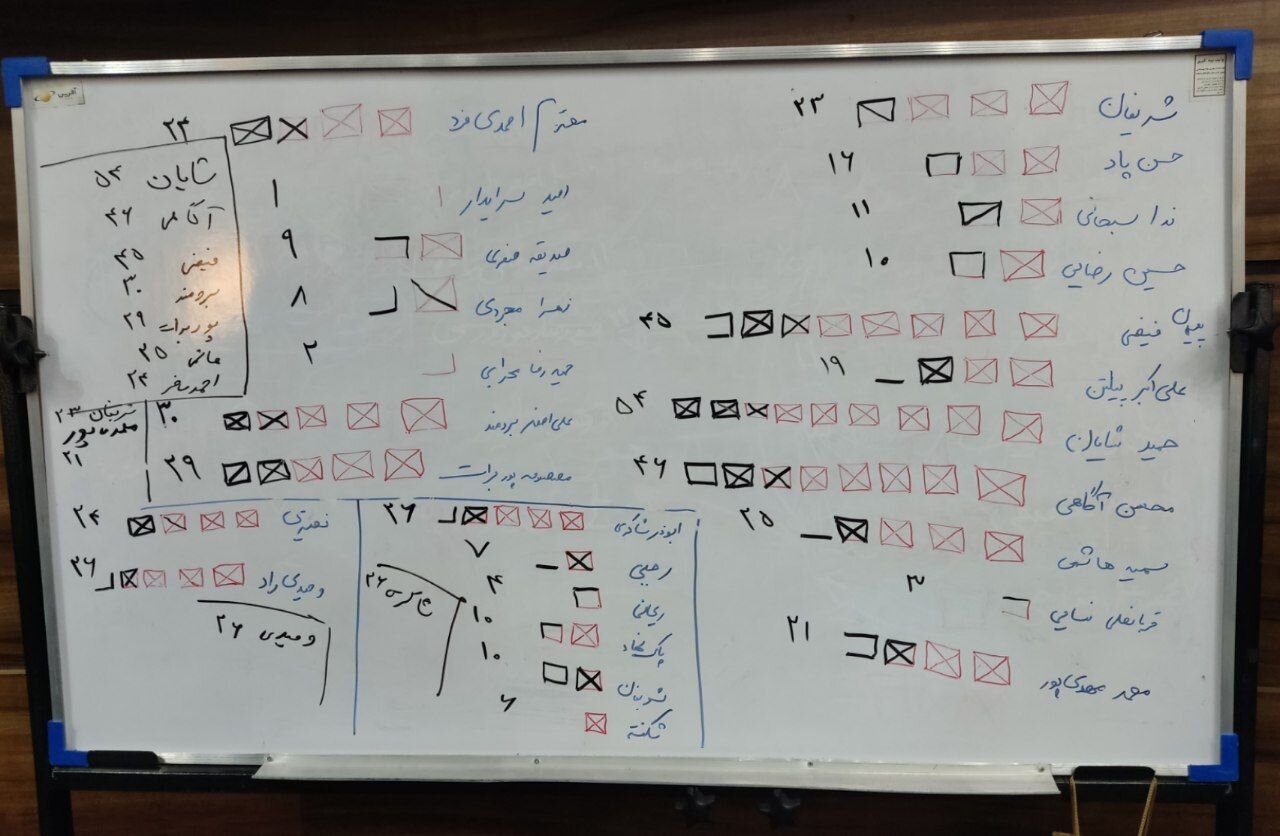 شریفیان ۲۳
حسن پاد ۱۶
ندا سبحانی ۱۱
حسین رضایی ۱۰
پیمان فیضی ۴۵
علی اکبر پیلتن ۱۹
حمید شایان ۵۴
محسن آگاهی ۴۶
سمیه هاشمی ۲۵
قربانعلی نسایی ۳
محمد مهدی پور ۲۱
محترم احمدی فرد ۲۴
امید سرایدار ۱
صدیقه صفری ۹
زهرا مجردی ۸
حمیدرضا محرابی ۲
علی اصغر برومند ۳۰
معصومه پوربرات ۲۹
شایان ۵۴
آگاهی ۴۶
فیضی ۴۵
برومند ۳۰
پوربرات ۲۹
هاشمی ۲۵
۲۴
۲۳
مهدی پور
۲۱
ابوذر شاکری ۲۶
رجبی ۷
ریحانی ۴
پاک نژاد ۱۰
۱۰
شکفته ۶
شاکری ۲۶
نصیری ۲۴
وحیدی راد ۲۶
وحیدی ۲۶